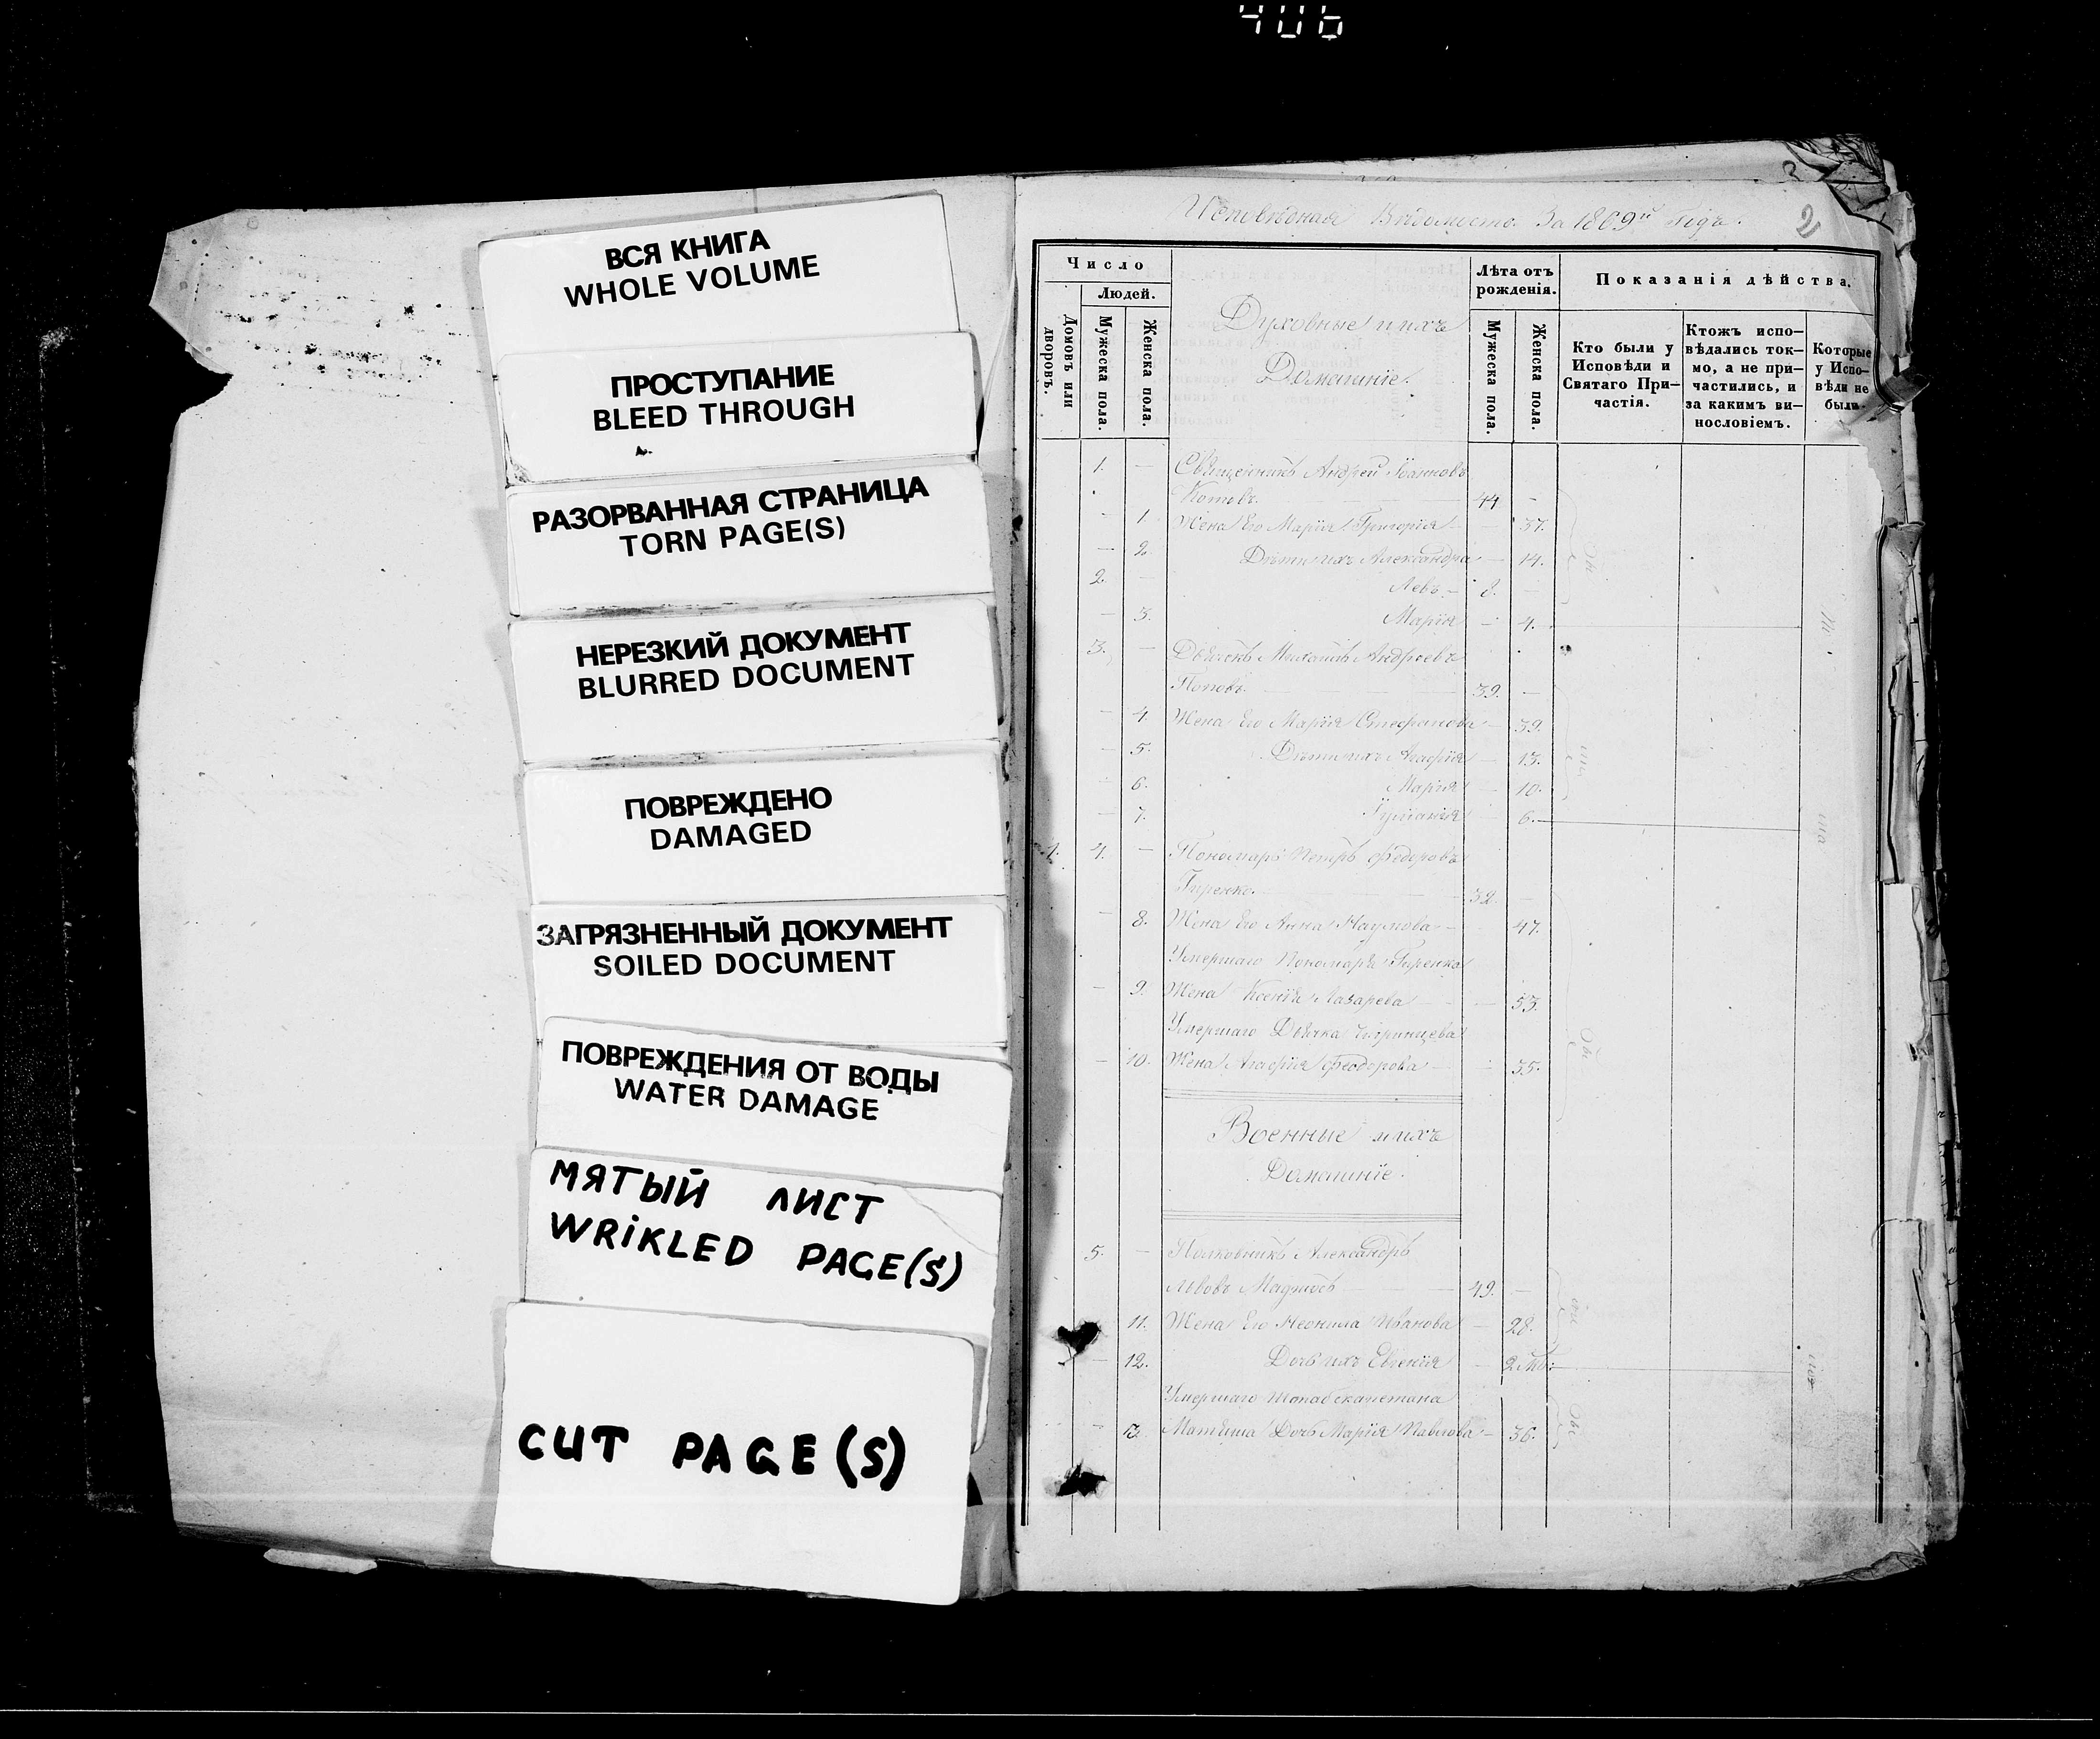 406
ВСЯ КНИГА
WHOLE VOLUME
ПРОСТУПАНИЕ
BLEED THROUGH
РАЗОРВАННАЯ СТРАНИЦА
TORN PAGE(S)
НЕРЕЗКИЙ ДОКУМЕНТ
BLURRED DOCUMENT
ПОВРЕЖДЕНО
DAMAGED
ЗАГРЯЗНЕННЫЙ ДОКУМЕНТ
SOILED DOCUMENT
ПОВРЕЖДЕНИЯ ОТ ВОДЫ
WATER DAMAGE
МЯТЫЙ ЛИСТ
WRiKLED PAGE(S)
CUT PAGE(S)
За 1869й Годъ.
2
Число
Людей.
Домовъ или дворовъ.
Мужеска пола.
Женска пола.
Духовные и ихъ
Домашніе.
Лѣта отъ рожденія.
Мужеска пола.
Женска пола.
Показанія дѣйства.
Кто были у Исповѣди и Святаго Причастія.
Ктожъ исповѣдались токмо, а не причастились, и за какимъ винословіемъ.
Которые у Исповѣди не были.
1. — Священникъ Андрей Іоанновъ
Котовъ. 44 —
— 1. Жена Его Марія — 37.
— 2. Дѣти ихъ Александра — 14.
2. — Левъ — 8. —
— 3. Марія — 4.
3. — Дьячекъ Михаилъ Андреевъ
Поповъ. 39. —
— 4. Жена Его Марія Стефанова — 39.
— 5. Дѣти ихъ Агафія — 13.
— 6. Марія — 10.
— 7. Іуліанія — 6.
1. 4. — Пономарь Петръ Федоровъ
Гиренко. 32. —
— 8. Жена Его Анна Наумова — 47.
Умершаго Пономаря Гиренка
— 9. Жена Ксенія Лазарева — 53.
Умершаго Дьячка
— 10. Жена Агафія Феодорова — 35.
Военные и ихъ
Домашніе.
5. — Полковникъ Александръ
Львовъ 49. —
11. Жена Его Неонила Иванова — 28.
— 12. Дочь ихъ Евгенія — 2
Умершаго Штабскапетана
— 13. Дочь Марія Павлова — 36.